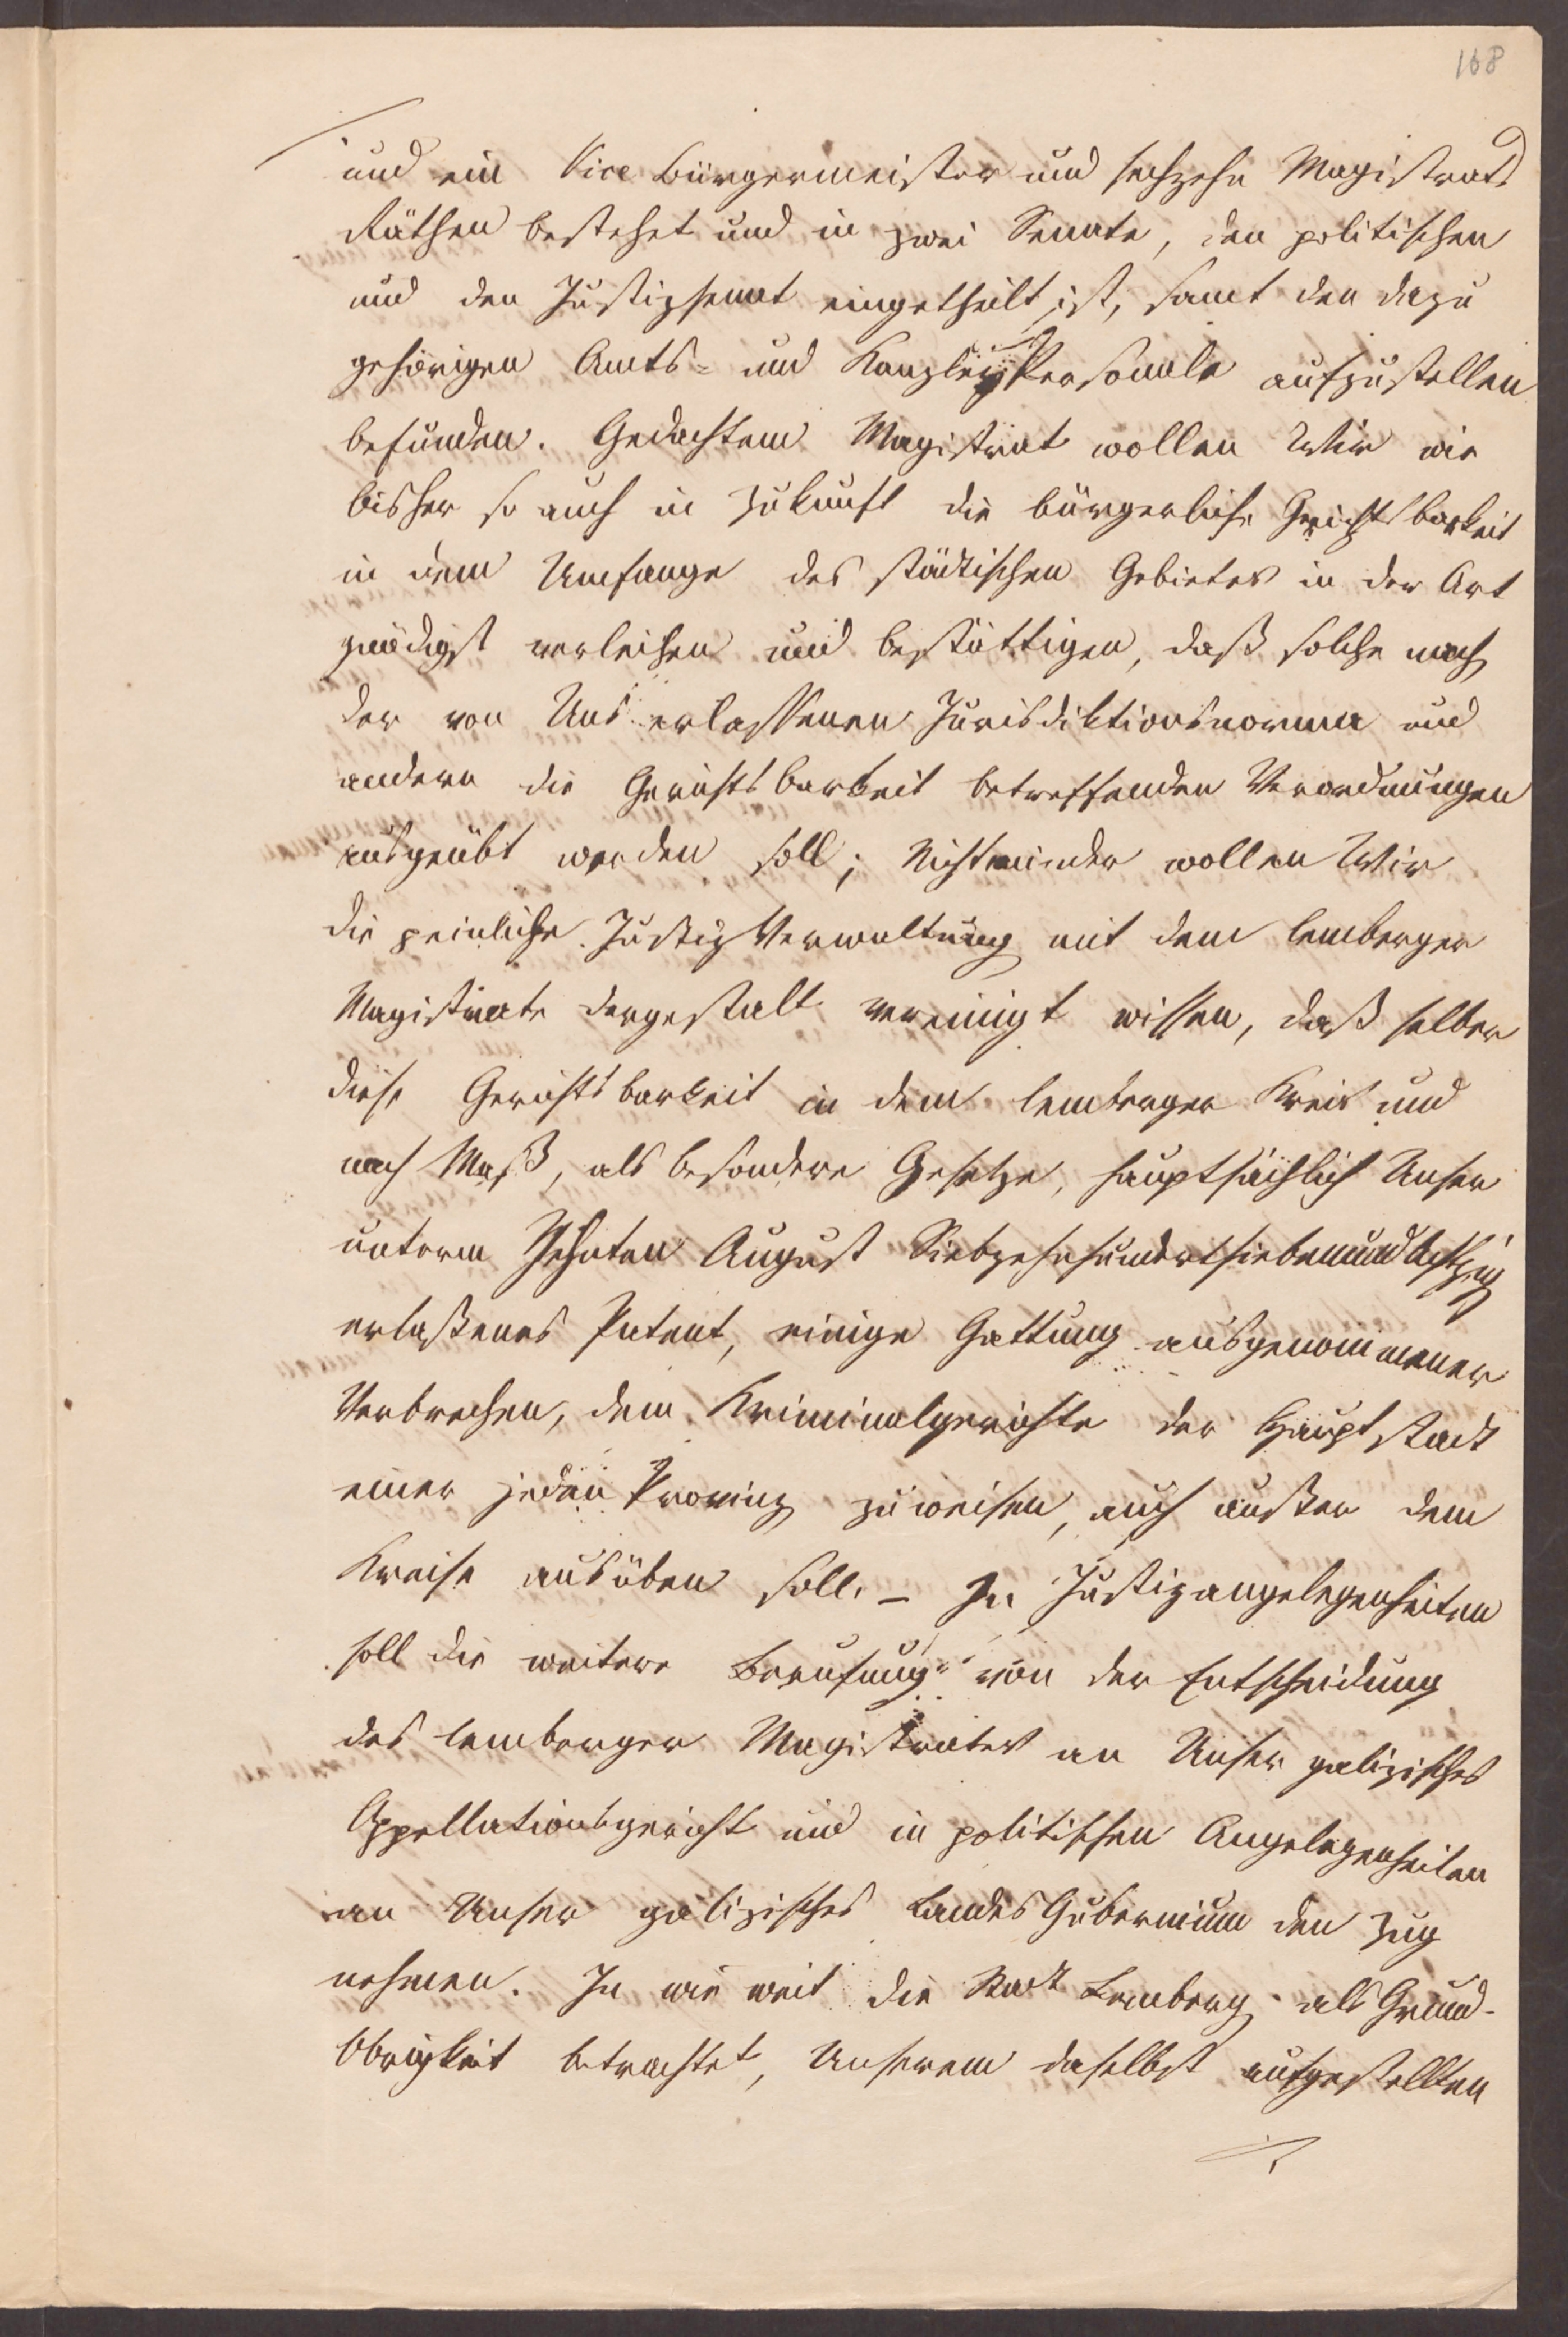 168
und ein Vice Bürgermeister und sechzehn Magistrats
Räthen bestehet und in zwei Senate, den politischen
und den Justizsenat eingetheilt ist, samt den dazu
gehörigen Amts- und Kanzley Personale aufzustellen
befunden. Gedachtem Magistrat wollen Wir wie
bisher so auch in Zukunft die bürgerliche Gerichtsbarkeit
in dem Umfange des städtischen Gebietes in der Art
gnädigst verleihen und bestättigen, daß solche nach
der von Uns erlassenen Jurisdiktionsnorma und
andern die Gerichtsbarkeit betreffenden Verordnungen
ausgeübt werden soll; Nichtminder wollen Wir
die peinliche Justiz Verwaltung mit dem lemberger
Magistrate dergestalt vereinigt wissen, daß selber
diese Gerichtsbarkeit in dem lemberger Kreis und
nach Maß, als besondere Gesetze, hauptsächlich Unser
unterm Zehnten August Siebzehnhundertsiebenundachtzig
erlaßenes Patent, einige Gattung ausgenommener
Verbrechen, dem Kriminalgerichte der Hauptstadt
einer jeden Provinz zuweisen, auch außer dem
Kreise ausüben soll. – In Justizangelegenheiten
soll die weitere Berufung von der Entscheidung
des lemberger Magistrates an Unser galizisches
Appellationsgericht und in politischen Angelegenheiten
an Unser galizisches Landes Gubernium den Zug
nehmen. In wie weit die Stadt Lemberg als Grund-
Obrigkeit betrachtet, Unserem daselbst aufgestellten